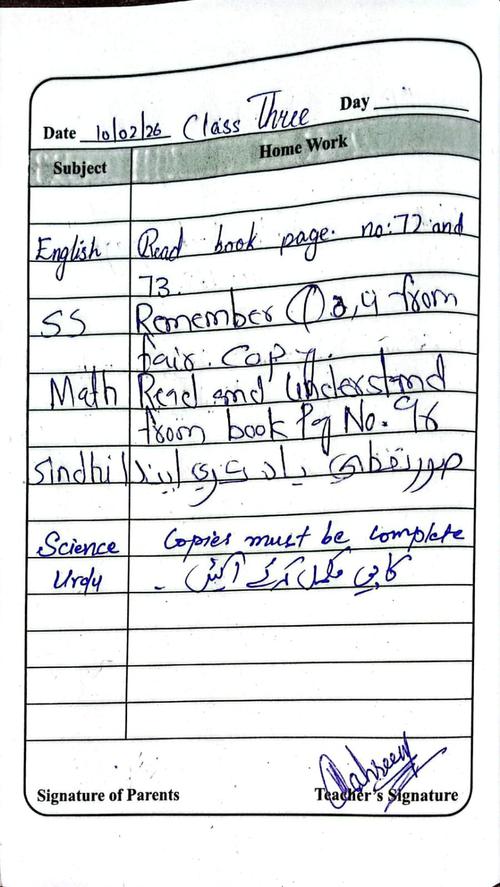 Date 10/02/26 Class Three Day
Subject Home Work
English Read book page. no:72 and
73.
SS Remember Q 3,4 from
fair. Copy.
Math Read and Understand
from book Pg No. 96
Sindhi ياد ڪري ايندا
Science Copies must be complete
Urdu کاپی مکمل کرکے آئیں ۔
Signature of Parents Teacher's Signature